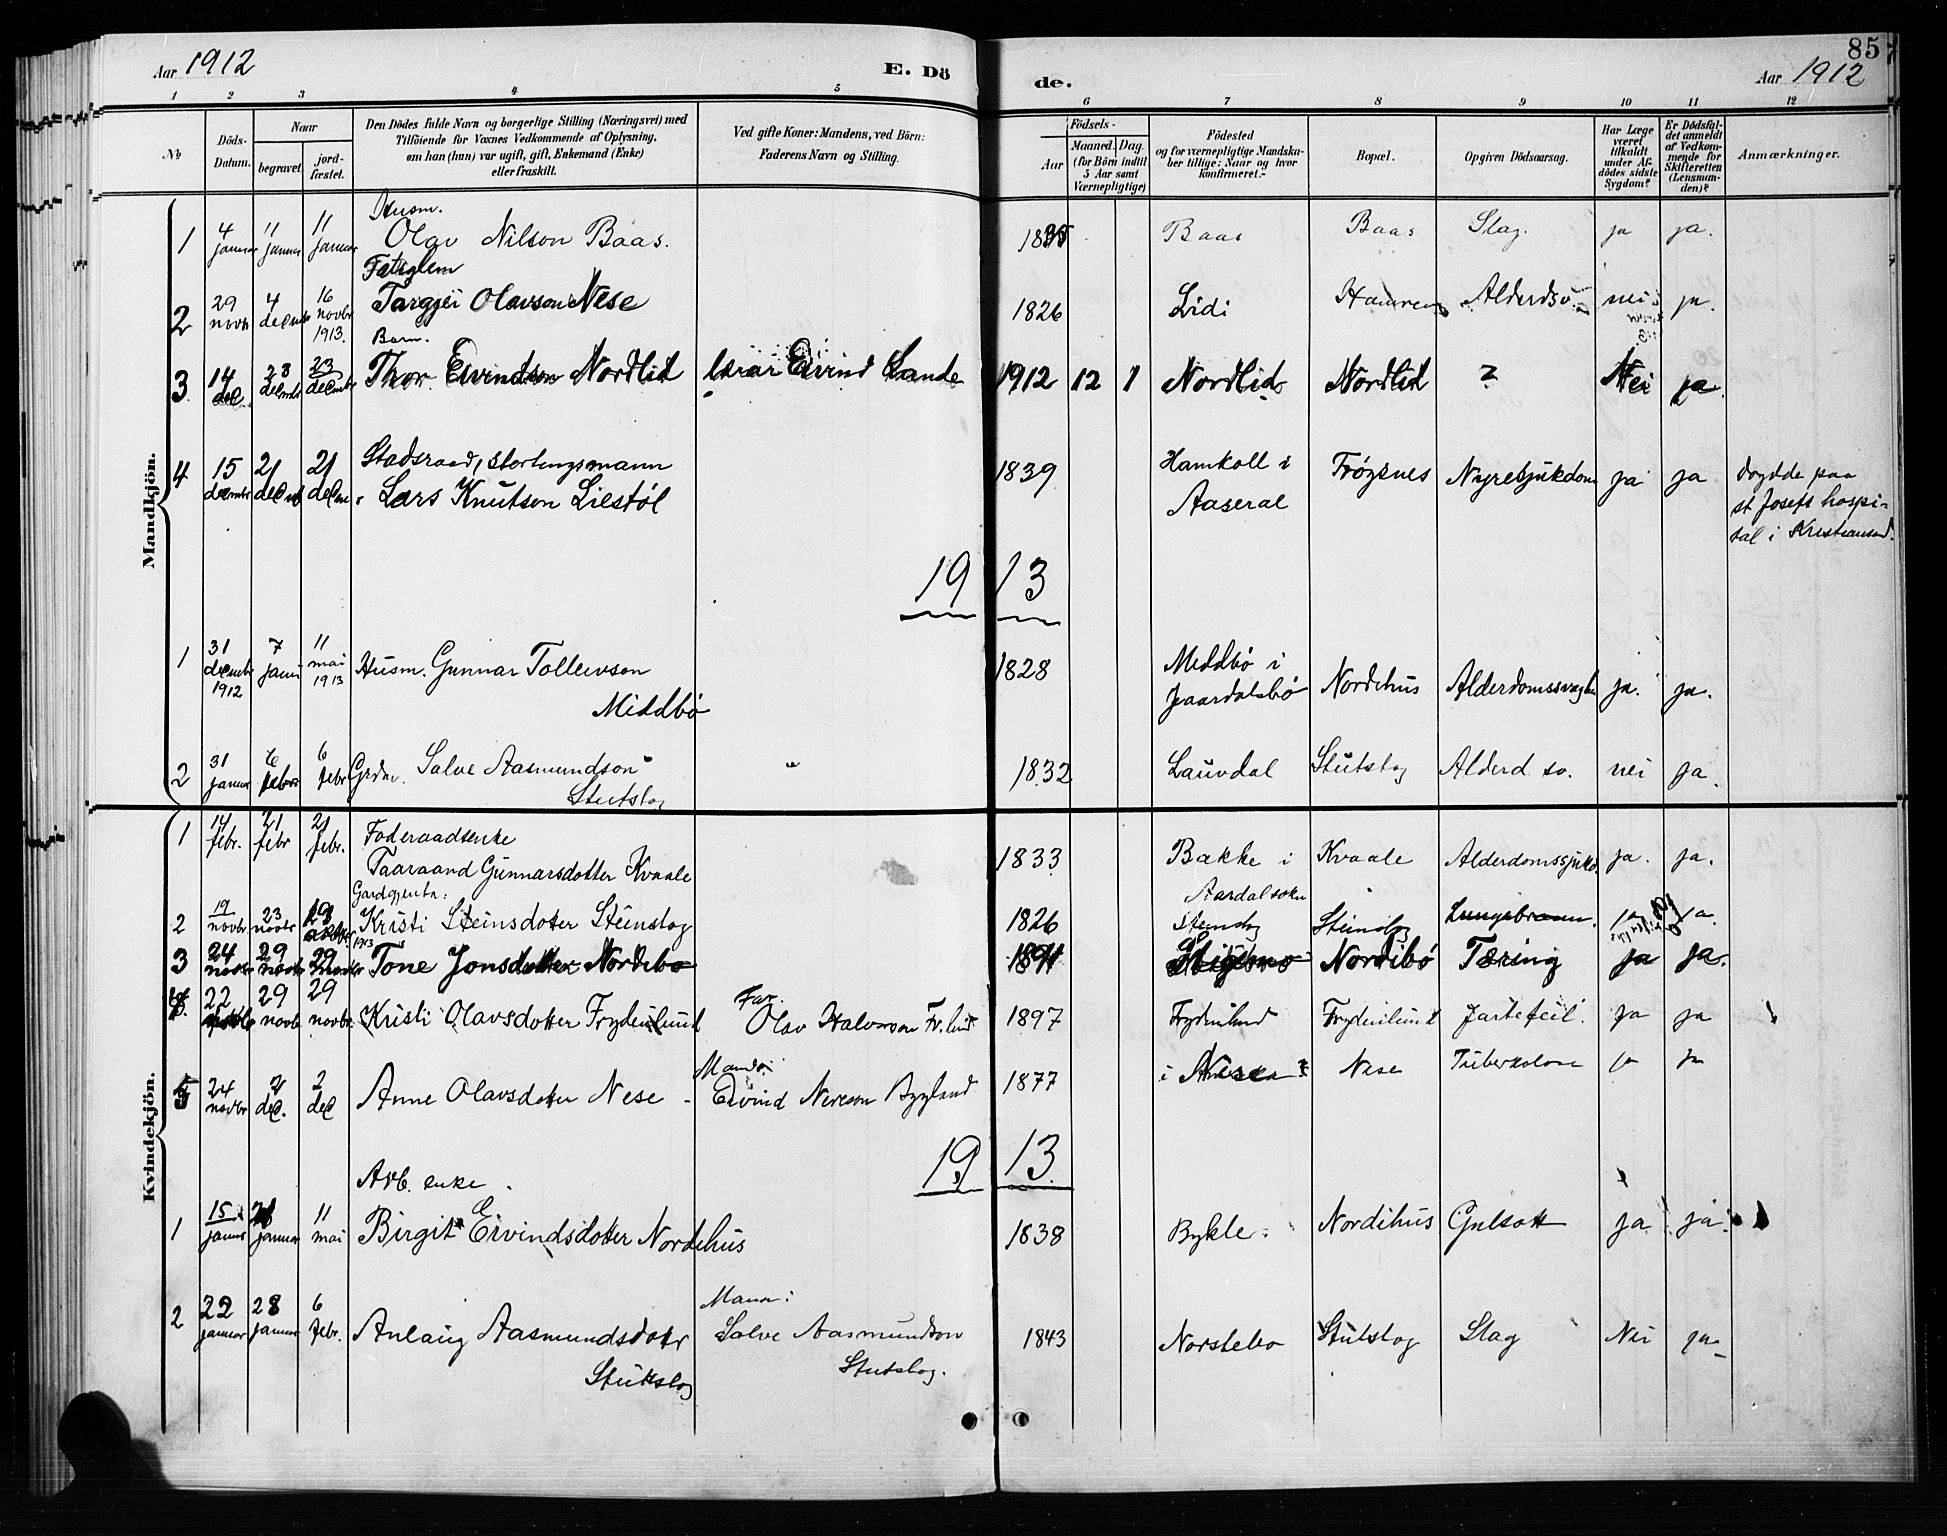 85
Aar 1912 E. Dö de. Aar 1912
1 2 3 4 5 6 7 8 9 10 11 12
No
Döds-Datum.
Naar
begravet
jordfæstet.
Den Dödes fulde Navn og borgerlige Stilling (Næringsvei) med
Tilföiende for Voxnes Vedkommende af Oplysning,
om han (hun) var ugift, gift, Enkemand (Enke)
eller fraskilt.
Ved gifte Koner: Mandens, ved Börn:
Faderens Navn og Stilling.
Födsels-
Aar
Maaned. Dag.
(for Börn indtil
5 Aar samt
Værnepligtige)
Födested
og for værnepligtige Mandska-
ber tillige: Naar og hvor
konfirmeret.-
Bopæl.
Opgiven Dödsaarsag.
Har Læge
været
tilkaldt
under Af-
dödes sidste
Sygdom?
Er Dödsfal-
det anmeldt
af Vedkom-
mende for
Skifteretten
(Lensman-
den)?
Anmærkninger.
Mandkjön.
Husm.
1 4 januar 11 januar 11 januar Olav Nilson Baas. Baas Baas Slag. ja ja.
2 29 novb 4 decmbr 16 novbr 1913. Targjei Olavson Nese 1826 Lidi Alderdsv. nei ja.
Barn.
3 14 dec 28 decmbr 23 decmbr Thor Eivindson Nordlid lærar Eivind Lande 1912 12 1 Nordlid Nordlid ? Nei ja
4 15 decmbr 21 decmb 21 decm Stadsraad, stortingsmann
Lars Knutson Liestøl 1839 Hamkoll i
Aaseral Frøysnes Nyresjukdom ja ja
døydde paa
st Josefs hospi-
tal i Kristiansand.
19 13
1 31 decmbr 1912 7 janu 11 mai 1913 Husm. Gunnar Tollevson
Middbø 1828 Middbø i
Jaardalsbø Nordehus ja. ja.
2 31 januar 6 febr 6 febr Grdm. Salve Aasmundson
Stutslog " 1832 Lauvdal Stutslog Alderd sv. nei ja.
Kvindekjön.
1 14 febr. 21 febr 21 febr. Føderaadsenke
Taaraand Gunnarsdotter Kvaale 1833 Bakke i
Aardal sokn Kvaale Alderdomssjukd. ja. ja.
Gardgjenta.
2 19 novbr. 23 novbr 1913 Kristi Steinsdoter Steinslog 1826 Steinslog Steinslog Lungebrann. ja ja.
3 24 novbr 29 novbr 29 novbr Tone Jonsdotter Nordebø Nordibø Tæring ja ja.
4 22 novbr 29 novb 29 novbr. Kristi Olavsdotter Frydenlund Far.
Olav Halvorson Fr.lund 1897 Frydenlund Frydenlund Jartefeil. ja ja
5 24 novbr 2 dec. 2 dec Anne Olavsdoter Nese Mand:
Eivind Nereson Bygland 1877 i Nese Tuberkolose ja ja
19 13
Arb. enke
1 15 januar januar 11 mai Birgit Eivindsdotter Nordehus 1838 Bykle. Nordihus Gulsott ja ja
2 22 januar 28 januar 6 febr. Anlaug Aasmundsdoter
Stutslog
Mann:
Salve Aasmundson
Stutslog. 1843 Norstebø Stutslog Slag Nei ja